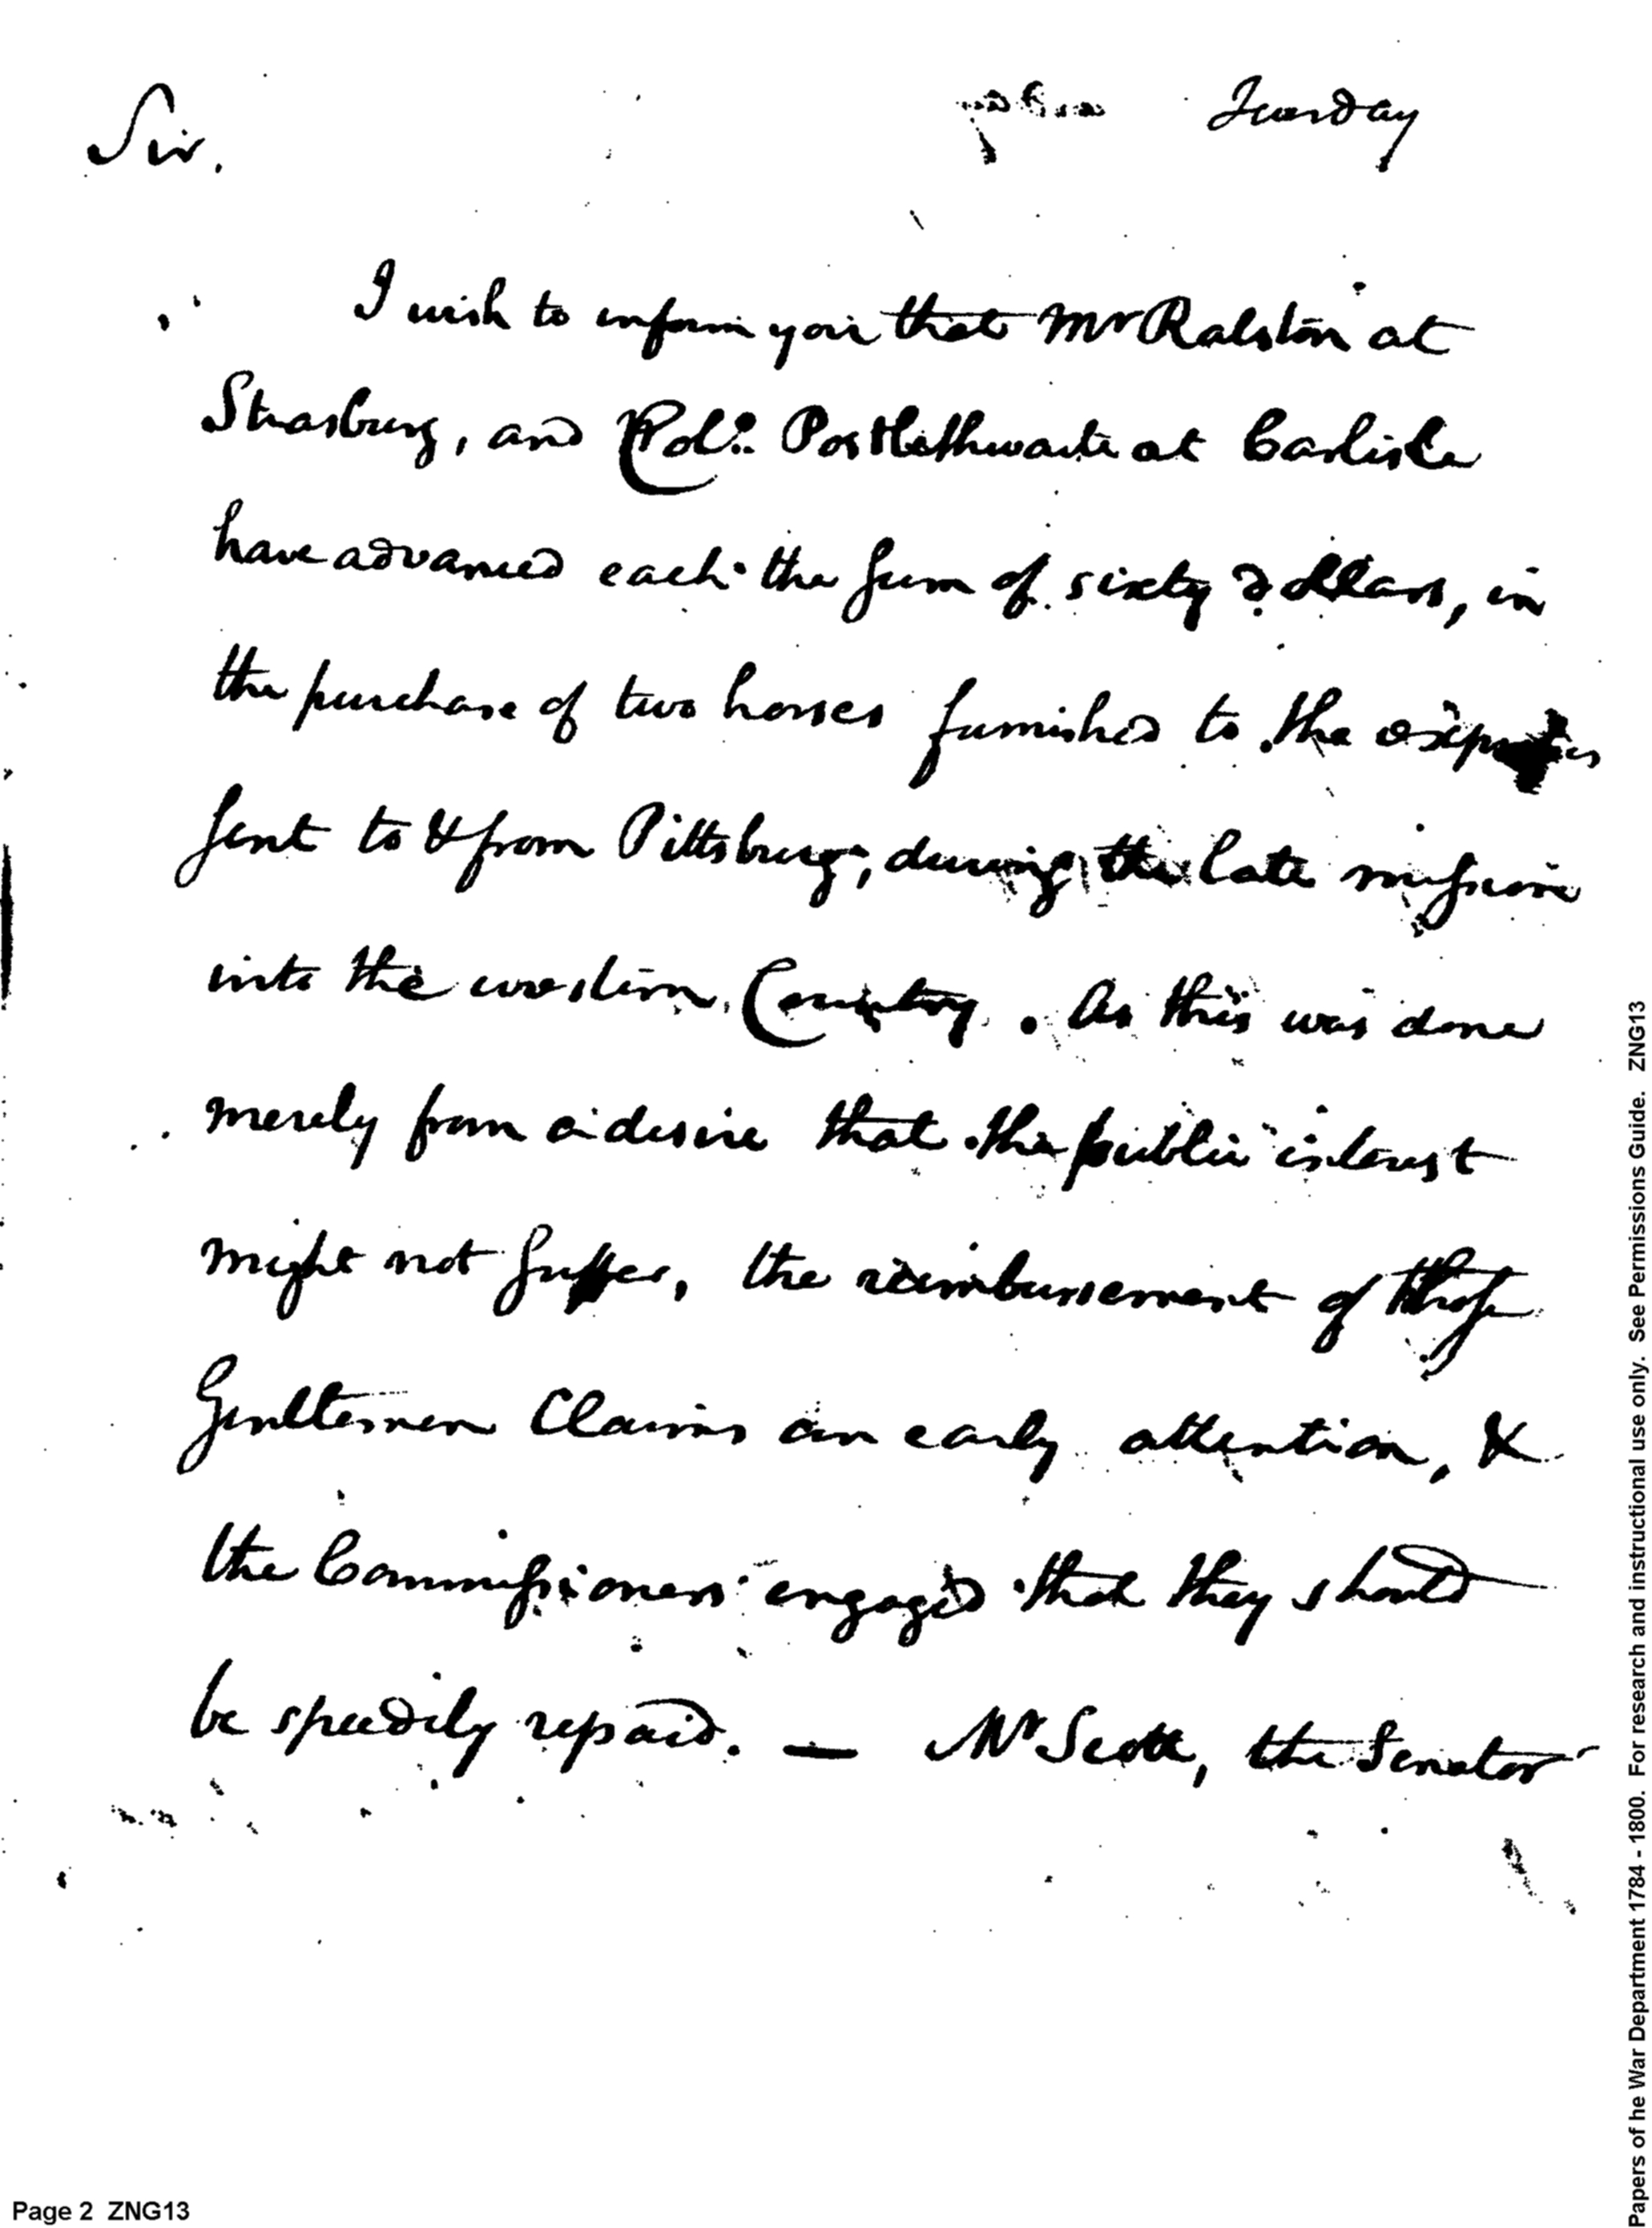 Sir.
Tuesday
I wish to inform you that Mr Ralston at
Strasburg, and Col. Postlethwaite at Carlisle
have advanced each the sum of sixty dollars, in
the purchase of two horses furnished to the expresses
sent to & from Pittsburg, during the late mission
into the western Country. As this was done
merely from a desire that the public interest
might not suffer, the reimbursement of those
Gentlemen Claims an early attention, &
the Commissioners engaged that they should
be speedily repaid. — Mr Scott, the Senator
Page 2 ZNG13
Papers of he War Department 1784 - 1800. For research and instructional use only. See Permissions Guide. ZNG13